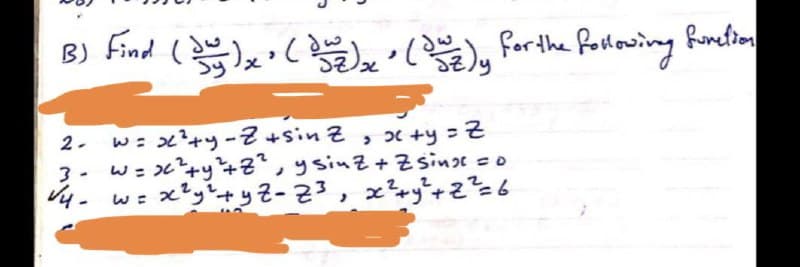 B) Find (∂w/∂y)x, (∂w/∂z)x, (∂w/∂z)y for the following function
2- w = x²+y-z+sin z , x+y = z
3- w = x²+y²+z² , y sin z + z sin x = 0
✓4- w = x²y²+yz-z³ , x²+y²+z²=6